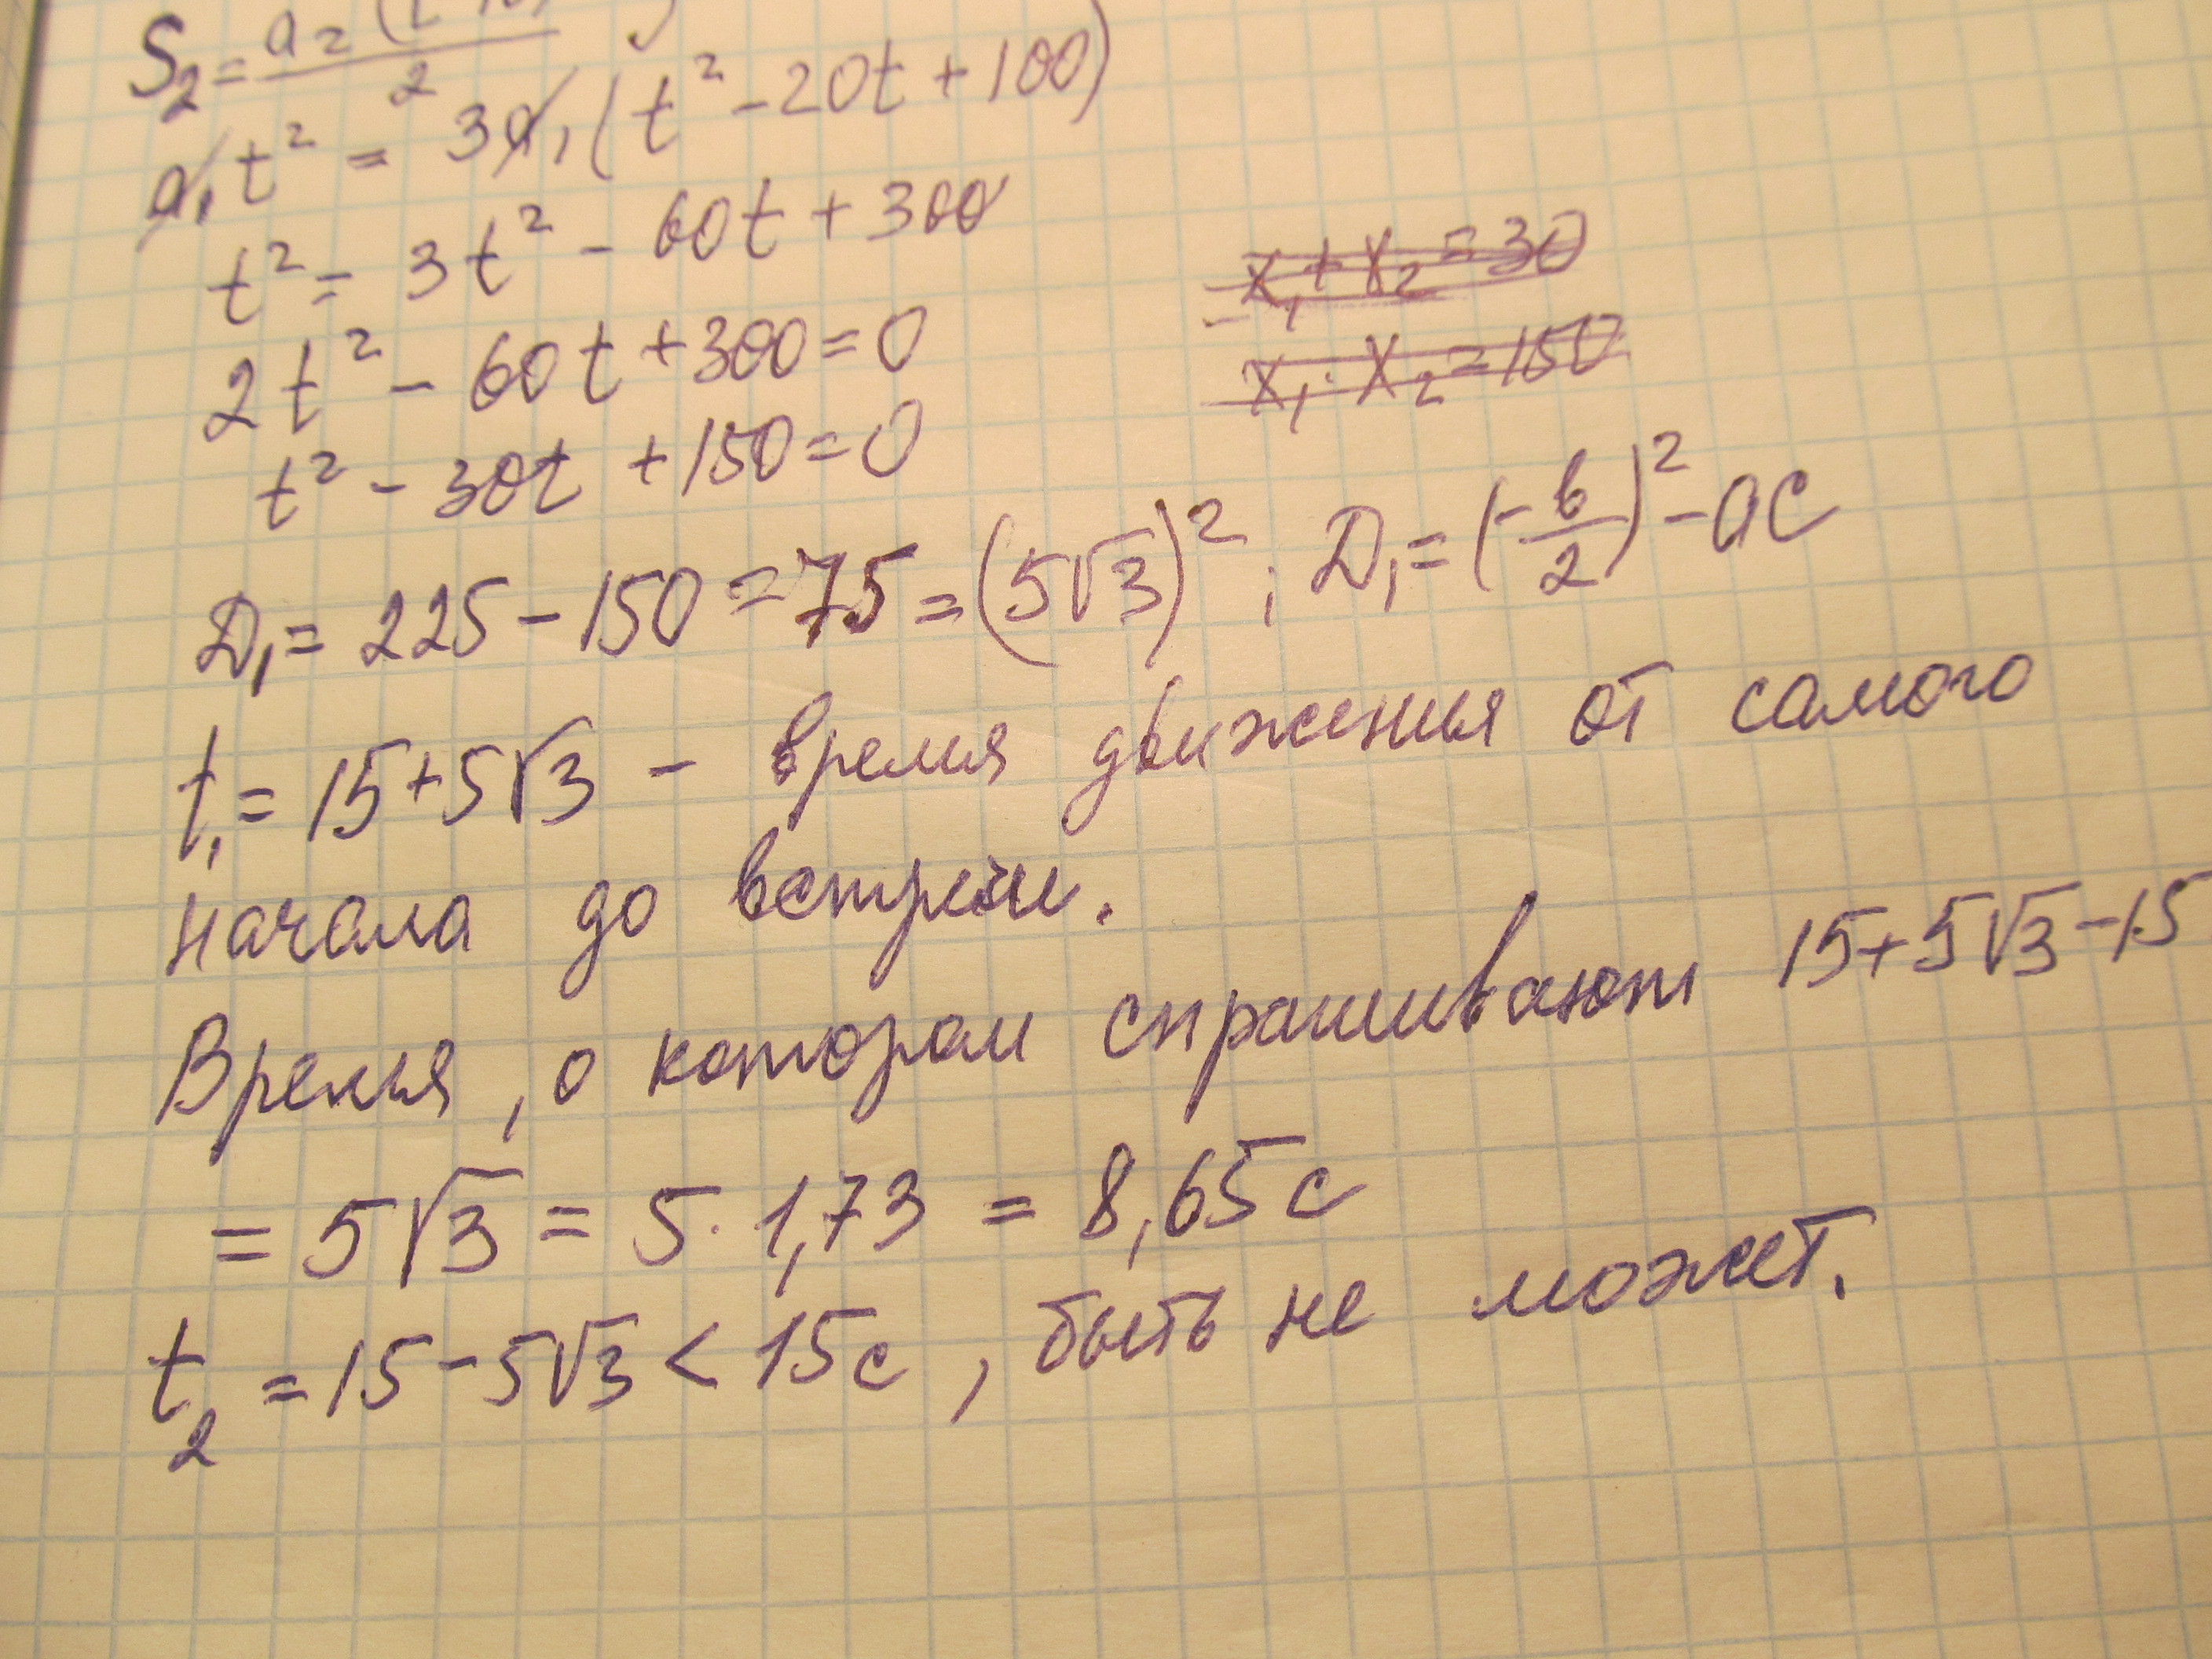 S₂ = a₂ (t
2
a₁t² = 3a₁(t² - 20t + 100)
t² = 3t² - 60t + 300
x₁ + x₂ = 30
2t² - 60t + 300 = 0
x₁ · x₂ = 150
t² - 30t + 150 = 0
D₁ = 225 - 150 = 75 = (5√3)² ; D₁ = (-в/2)² - ac
t₁ = 15 + 5√3 - время движения от самого
начала до встречи.
Время, о котором спрашивают 15 + 5√3 - 15
= 5√3 = 5 · 1,73 = 8,65 с
t₂ = 15 - 5√3 < 15 с, быть не может.